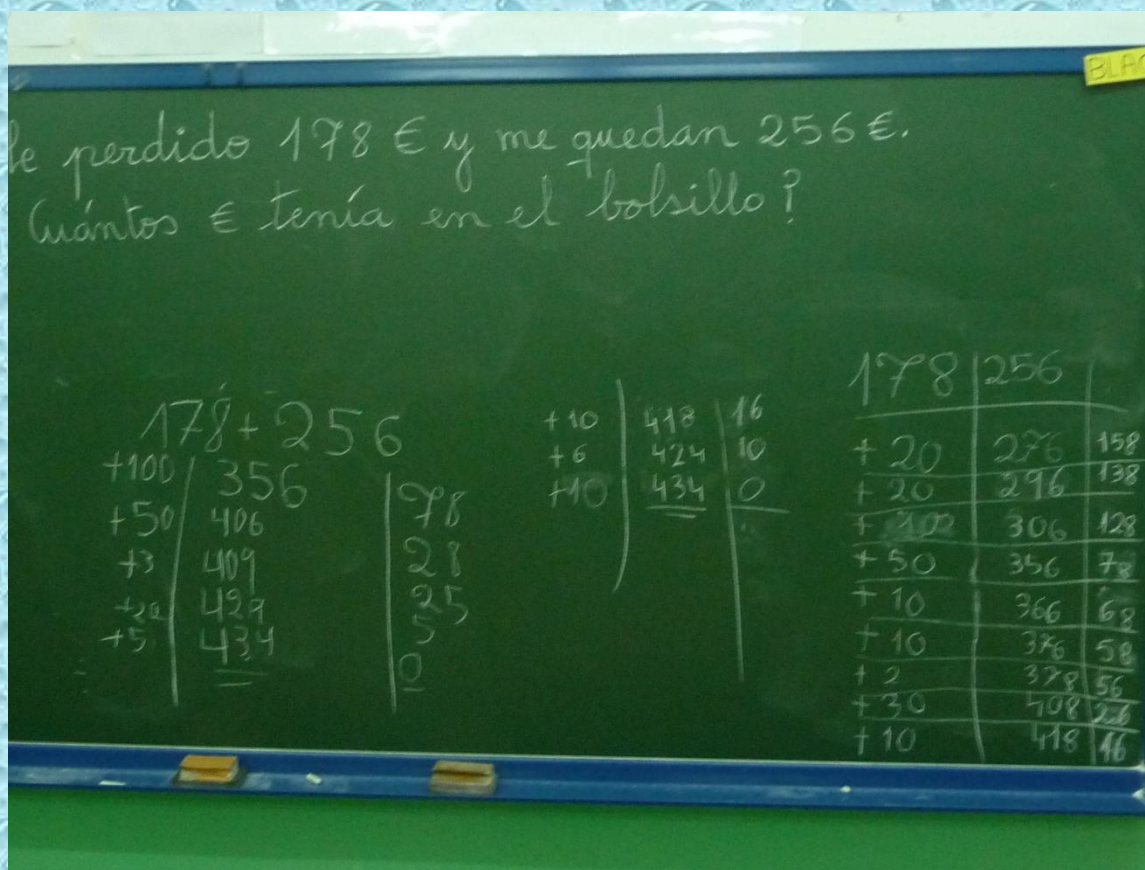 BLA
He perdido 178 € y me quedan 256 €.
Cuántos € tenía en el bolsillo?
178 + 256
+100 356 78
+50 406 28
+3 409 25
+20 429 5
+5 434 0
+10 418 16
+6 424 10
+10 434 0
178 256
+ 20 276 158
+ 20 296 138
+ 10 306 128
+ 50 356 78
+ 10 366 68
+ 10 376 58
+ 2 378 56
+ 30 408 26
+ 10 418 16